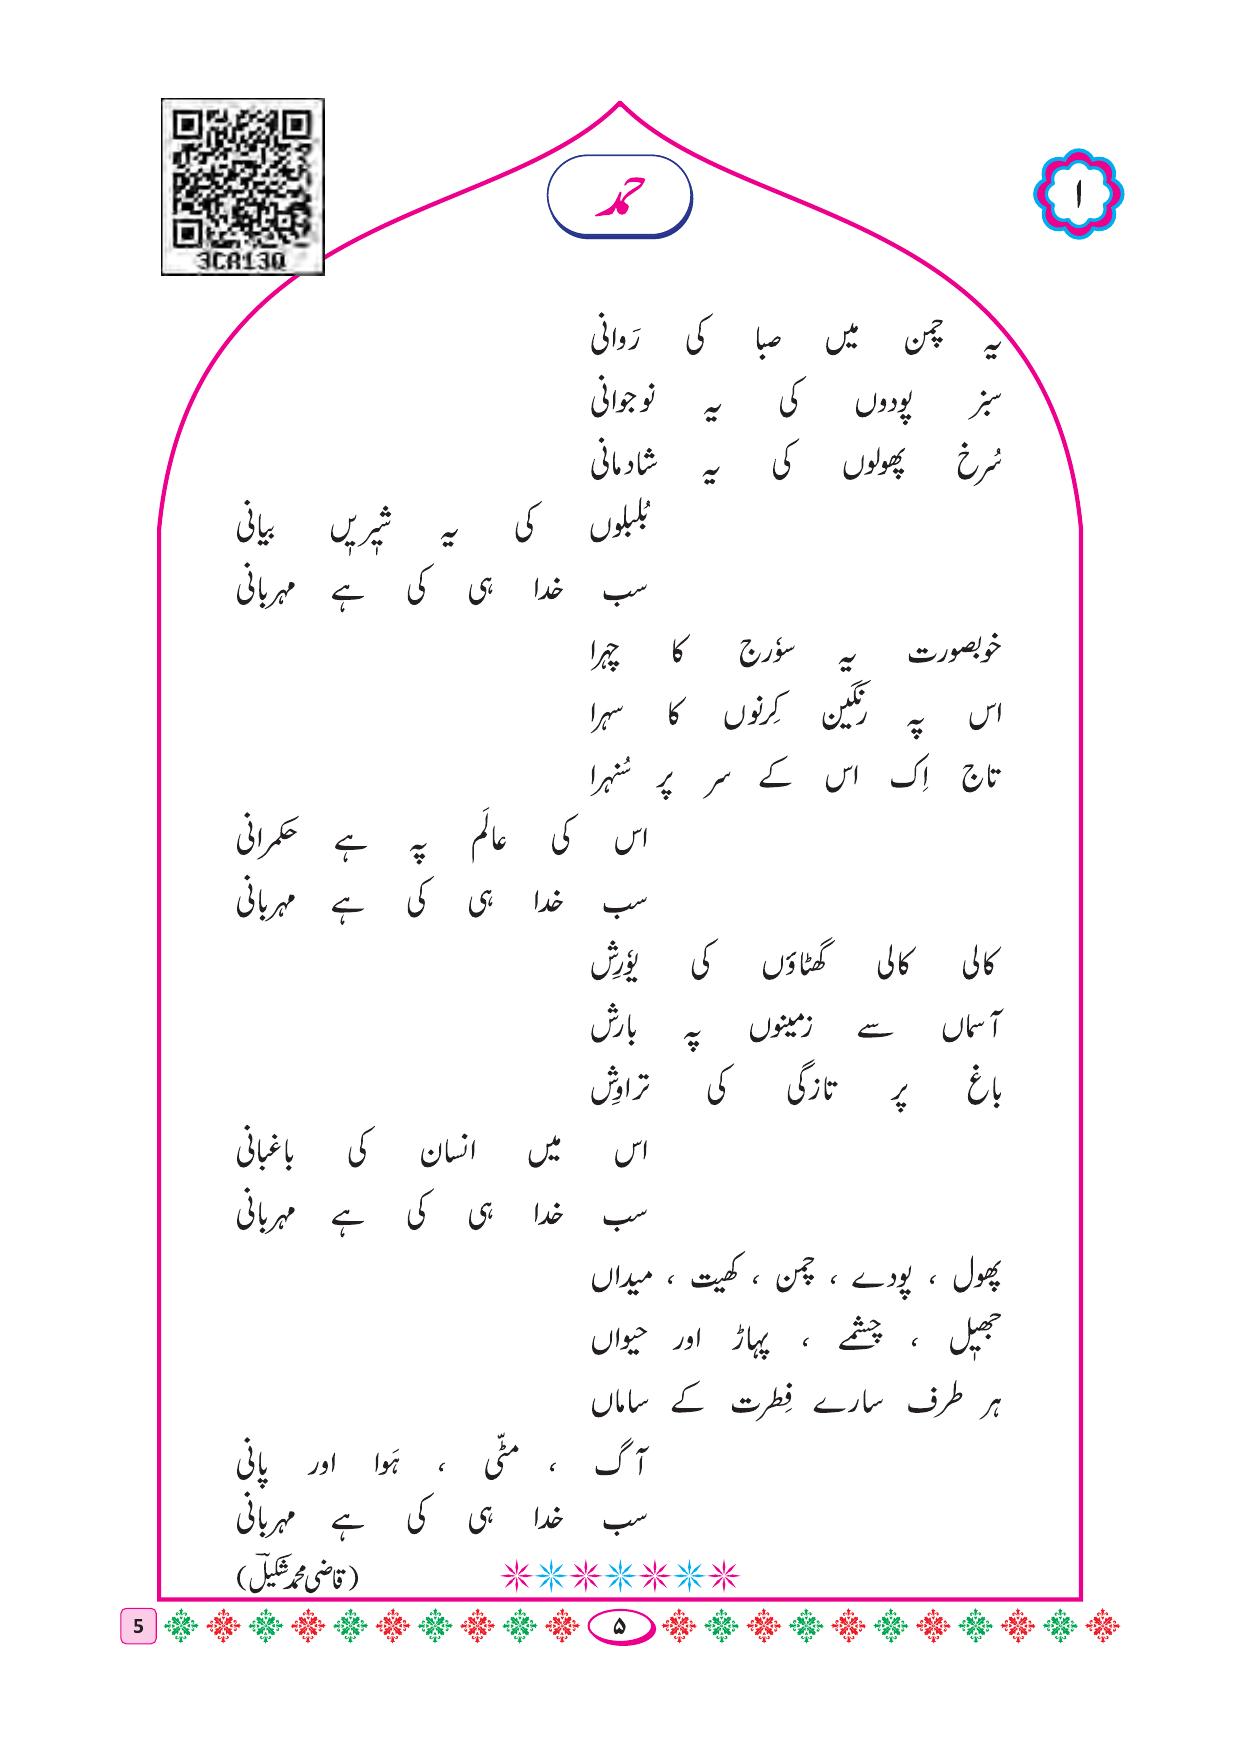 3CA13Q
حمد
۱
یہ چمن میں صبا کی رَوانی
سبز پودوں کی یہ نوجوانی
سُرخ پھولوں کی یہ شادمانی
بُلبلوں کی یہ شیٖریٖں بیانی
سب خدا ہی کی ہے مہربانی
خوبصورت یہ سوٗرج کا چہرا
اس پہ رنگین کِرنوں کا سہرا
تاج اِک اس کے سر پر سُنہرا
اس کی عالَم پہ ہے حکمرانی
سب خدا ہی کی ہے مہربانی
کالی کالی گھٹاؤں کی یوٗرِش
آسماں سے زمینوں پہ بارش
باغ پر تازگی کی تراوِش
اس میں انسان کی باغبانی
سب خدا ہی کی ہے مہربانی
پھول ، پودے ، چمن ، کھیت ، میداں
جھیٖل ، چشمے ، پہاڑ اور حیواں
ہر طرف سارے فِطرت کے ساماں
آگ ، مٹّی ، ہَوا اور پانی
سب خدا ہی کی ہے مہربانی
(قاضی محمد شکیلؔ)
5
۵